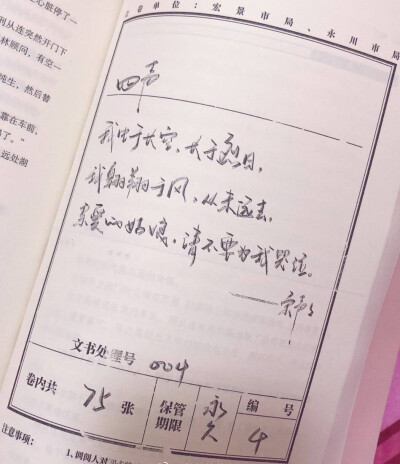 心脏停了一
刑从连突然开门下
林顾问，有空一
先生，然后替
靠在车前，
了。”
远处湖
卷单位：宏景市局、永川市局
四声
我生于长空，长于烈日，
我翱翔于风，从未远去。
亲爱的姑娘，请不要为我哭泣。
——宋声声
文书处理号 004
卷内共 75 张 保管期限 永久 编号 4
注意事项：